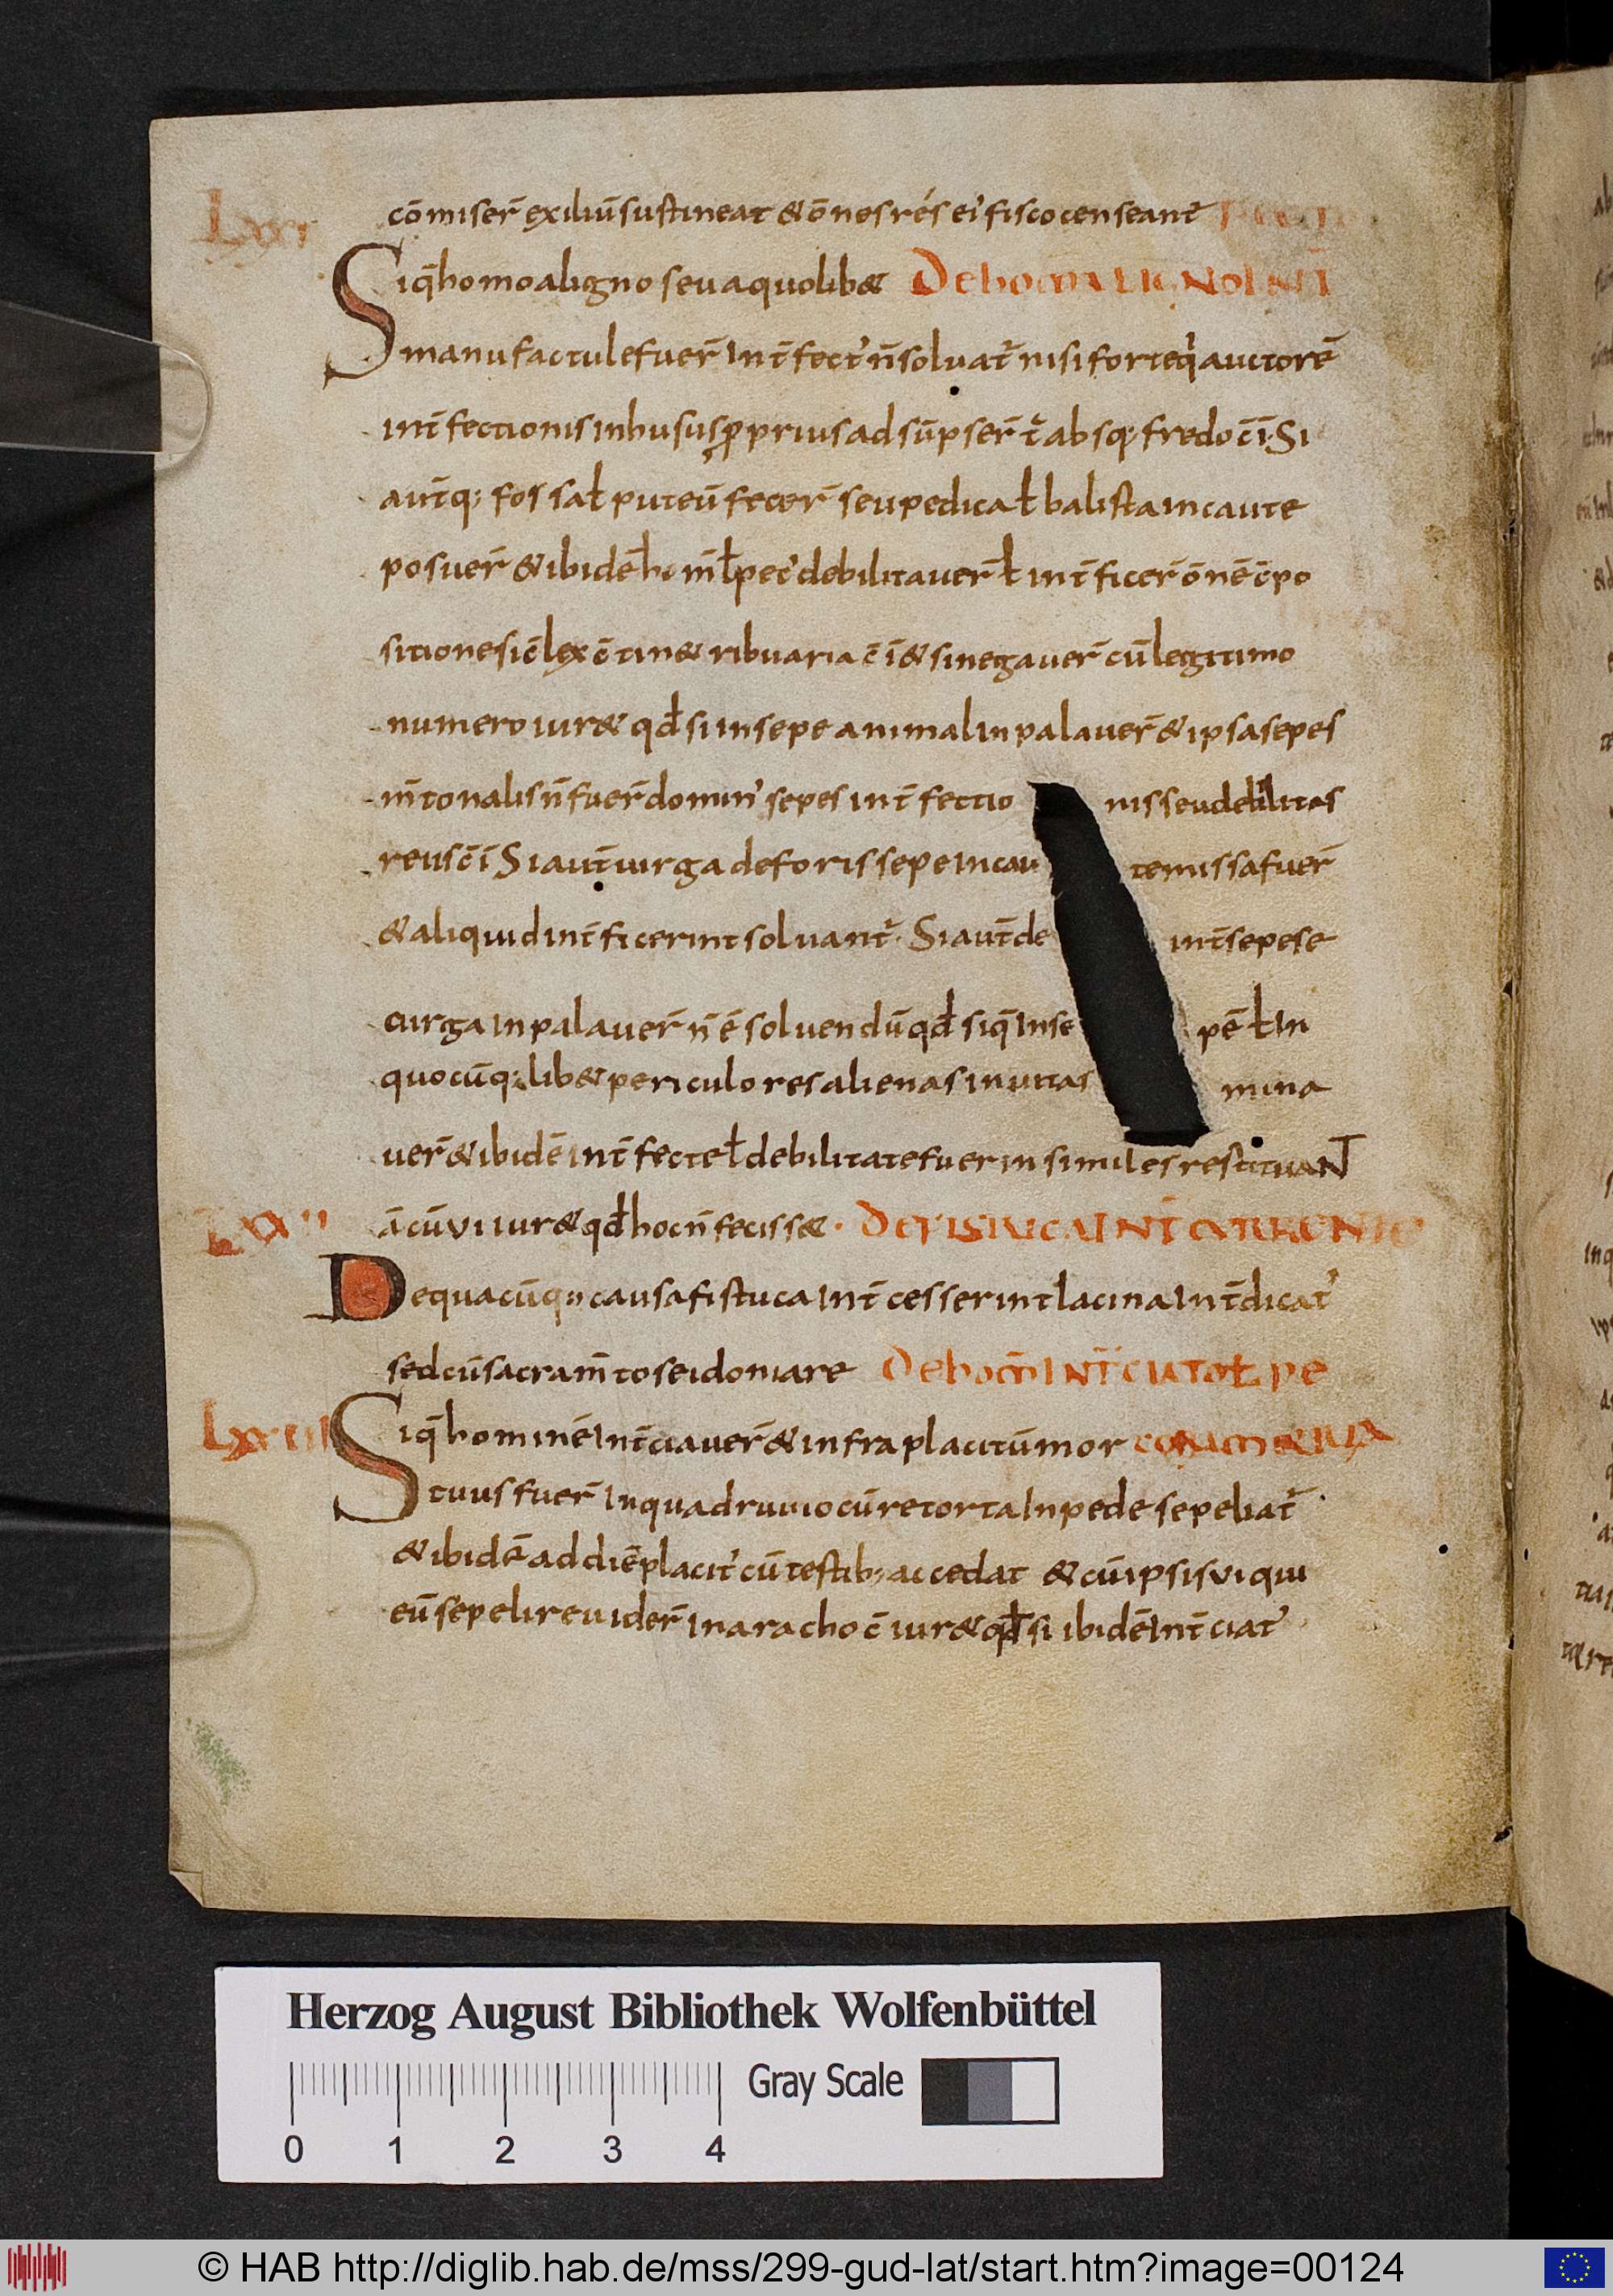 Lxxi cōmiser̄ exiliū sustineat & ōnes rés ei' fisco censeant'
Siq̄ homo a ligno seu a quolib& De hom̄ a ligno int̄
manu factule fuer̄ int̄fect' n̄ soluat' nisi forteq' auctorē
int̄fectionis in husus ꝓprius adsūpser̄ t' absq; fredo c̄i· Si
aut̄q; fossa ł puteū fecer̄ seu pedica ł balista incaute
posuer̄ & ibidē hom̄ ł pec' debilitauer̄ ł int̄ficer̄ ōnē c̄po
sitione sic̄ lex c̄tin& ribuaria c̄i & si negauer̄ cū legitimo
numero iur& qđ si in sepe animal inpalauer̄ & ipsa sepes
m̄tonalis n̄ fuer̄ domin' sepes int̄fectio nis seu debilitas
reus c̄i Si aut̄ uirga de foris sepe incau te missa fuer̄
& aliquid int̄ficerint soluant'· Si aut̄ de int̄ sepe se
uirga inpalauer̄ n̄ ē soluendū qđ siq̄ in se pē ł in
quocūq; lib& periculo res alienas inuitas mina
uer̄ & ibidē int̄fecte ł debilitate fuerin similes restituaNT
ā cū vi iur& qđ hoc n̄ feciss&·
De quacūq; causa fistuca int̄cesserint lacina int̄dicat'
sed cū sacram̄to se idoniare De hom̄ int̄ciato ł pe
Lxxiii Siq̄ hominē int̄ciauer̄ & infra placitū mor
tuus fuer̄ in quadruuio cū retorta in pede sepeliat'·
& ibidē ad diē placit' cū testib; accedat & cū ipsis vi qui
eū sepelire uider̄ in aracho c̄iur& qđ si ibidē int̄ciat'
Herzog August Bibliothek Wolfenbüttel
Gray Scale
0 1 2 3 4
© HAB http://diglib.hab.de/mss/299-gud-lat/start.htm?image=00124